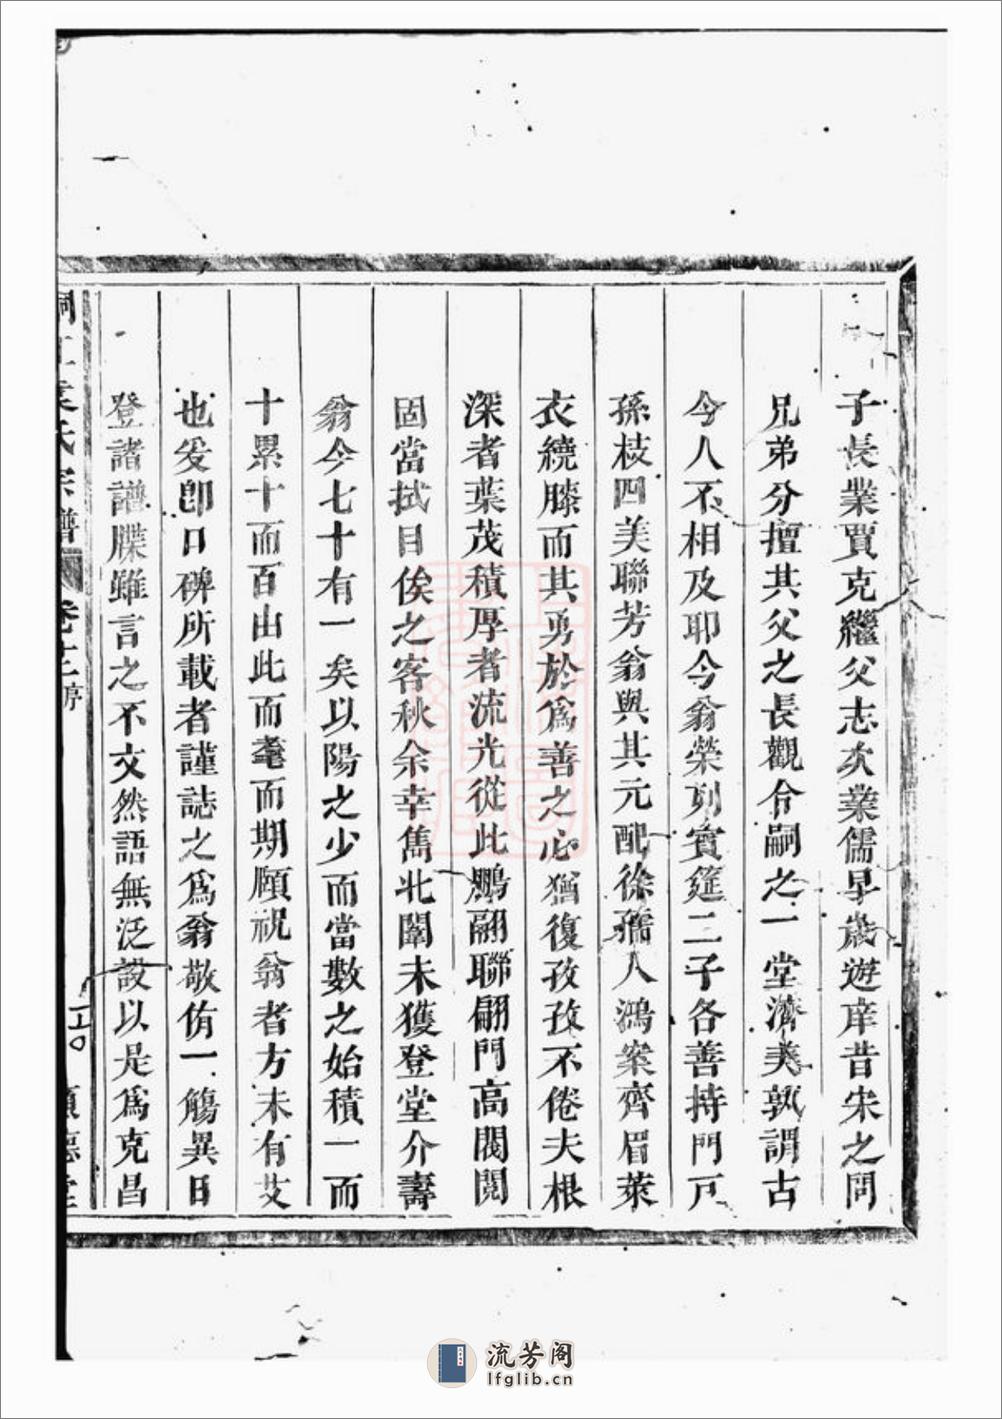 子長業賈克繼父志次業儒早歲遊庠昔宋之同
兄弟分擅其父之長觀今嗣之一堂濟美孰謂古
今人不相及耶今翁榮列賓筵二子各善持門戶
孫枝四美聯芳翁與其元配徐孺人鴻案齊眉萊
衣繞膝而其勇於為善之心猶復孜孜不倦夫根
深者葉茂積厚者流光從此鵬翮聯翩門高閥閱
固當拭目俟之客秋余幸雋北闈未獲登堂介壽
翁今七十有一矣以陽之少而當數之始積一而
十累十而百由此而耄而期頤祝翁者方未有艾
也爰即口碑所載者謹誌之為翁敬侑一觴異日
登諸譜牒雖言之不文然語無泛設以是為克昌
氏宗譜 卷十二 序
流芳阁
lfglib.cn